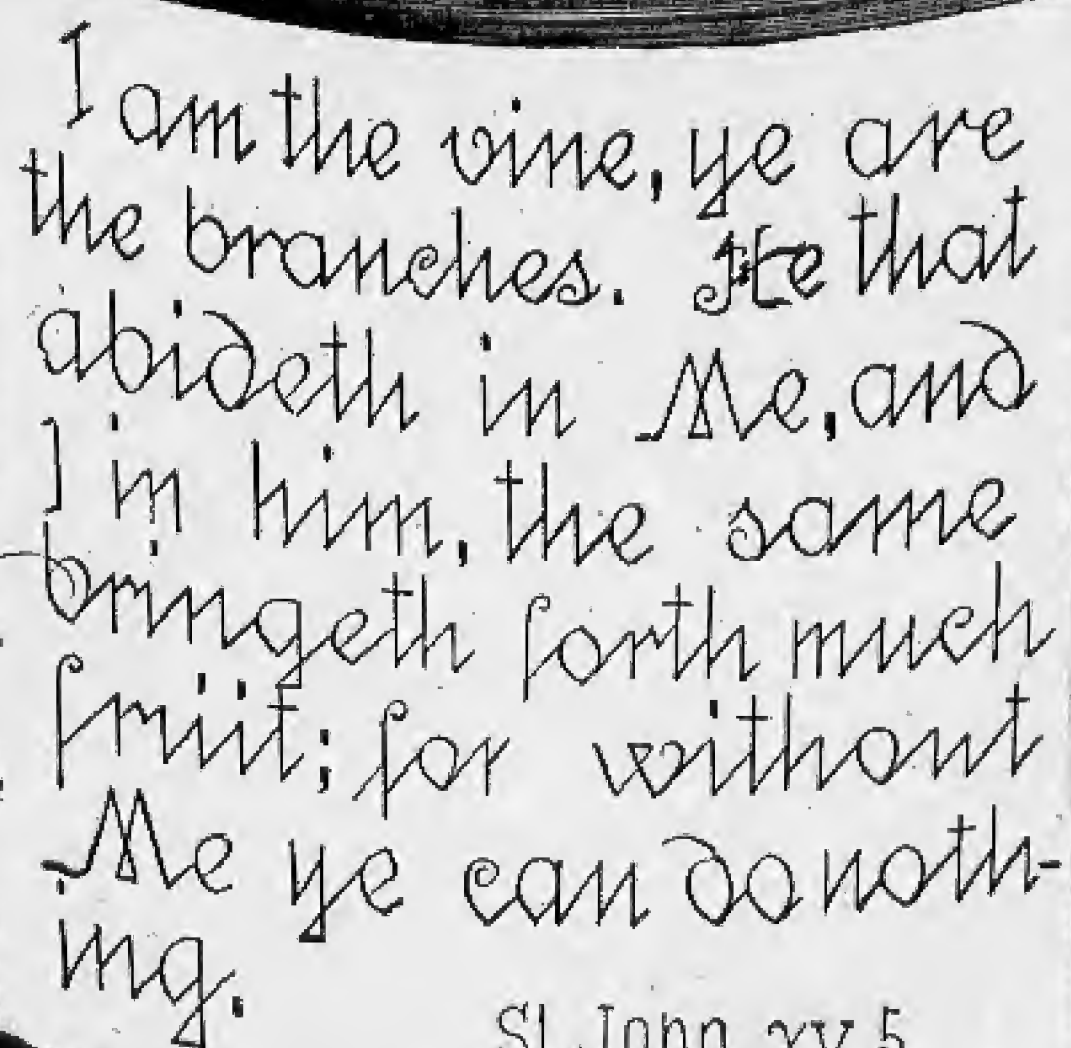 I am the vine, ye are
the branches. He that
abideth in Me, and
I in him, the same
bringeth forth much
fruit; for without
Me ye can do noth-
ing.
St. John xv 5